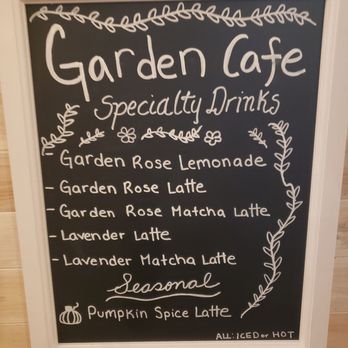 Garden Cafe
Specialty Drinks
- Garden Rose Lemonade
- Garden Rose Latte
- Garden Rose Matcha Latte
- Lavender Latte
- Lavender Matcha Latte
Seasonal
Pumpkin Spice Latte
ALL: ICED or HOT